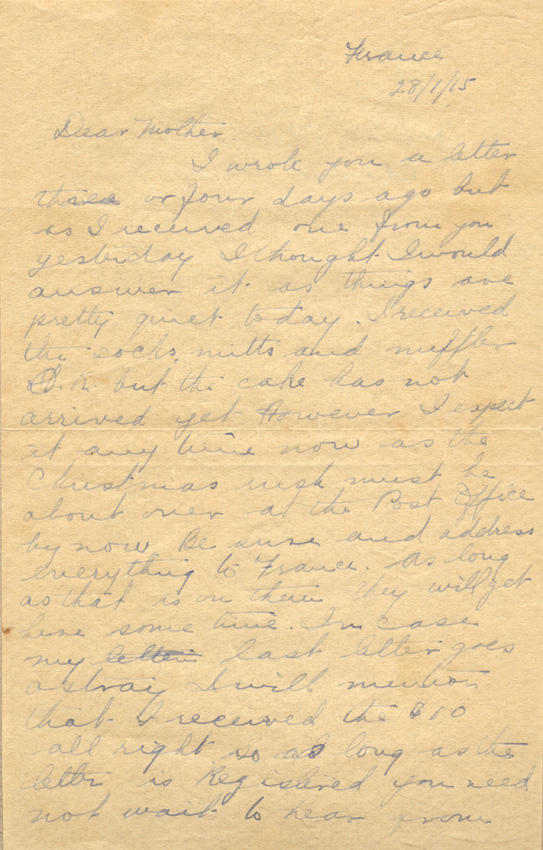 France
28/1/15
Dear Mother
I wrote you a letter
three or four days ago but
as I received one from you
yesterday I thought I would
answer it as things are
pretty quiet today. I received
the socks, mitts and muffler
O.K. but the cake has not
arrived yet However I expect
it any time now as the
Christmas rush must be
about over at the Post Office
by now Be sure and address
everything to France. As long
as that is on them they will get
here some time. In case
my letter last letter goes
astray I will mention
that I received the $10
all right so as long as the
letter is Registered you need
not wait to hear from